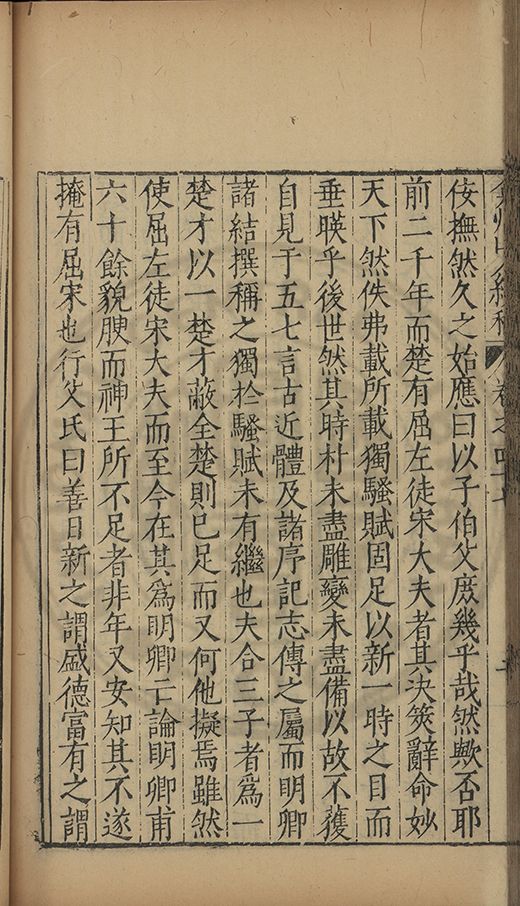 弇州山人續稿 卷之四十七
侒撫然久之始應曰以子伯父庻幾乎哉然歟否耶
前二千年而楚有屈左徒宋大夫者其决筴辭命妙
天下然佚弗載所載獨騷賦固足以新一時之目而
垂暎乎後世然其時朴未盡雕變未盡備以故不獲
自見于五七言古近體及諸序記志傳之屬而明卿
諸結撰稱之獨扵騷賦未有繼也夫合三子者爲一
楚才以一楚才蔽全楚則已足而又何他擬焉雖然
使屈左徒宋大夫而至今在其爲明卿亡論明卿甫
六十餘貌腴而神王所不足者非年又安知其不遂
掩有屈宋也行父氏曰善日新之謂盛德富有之謂